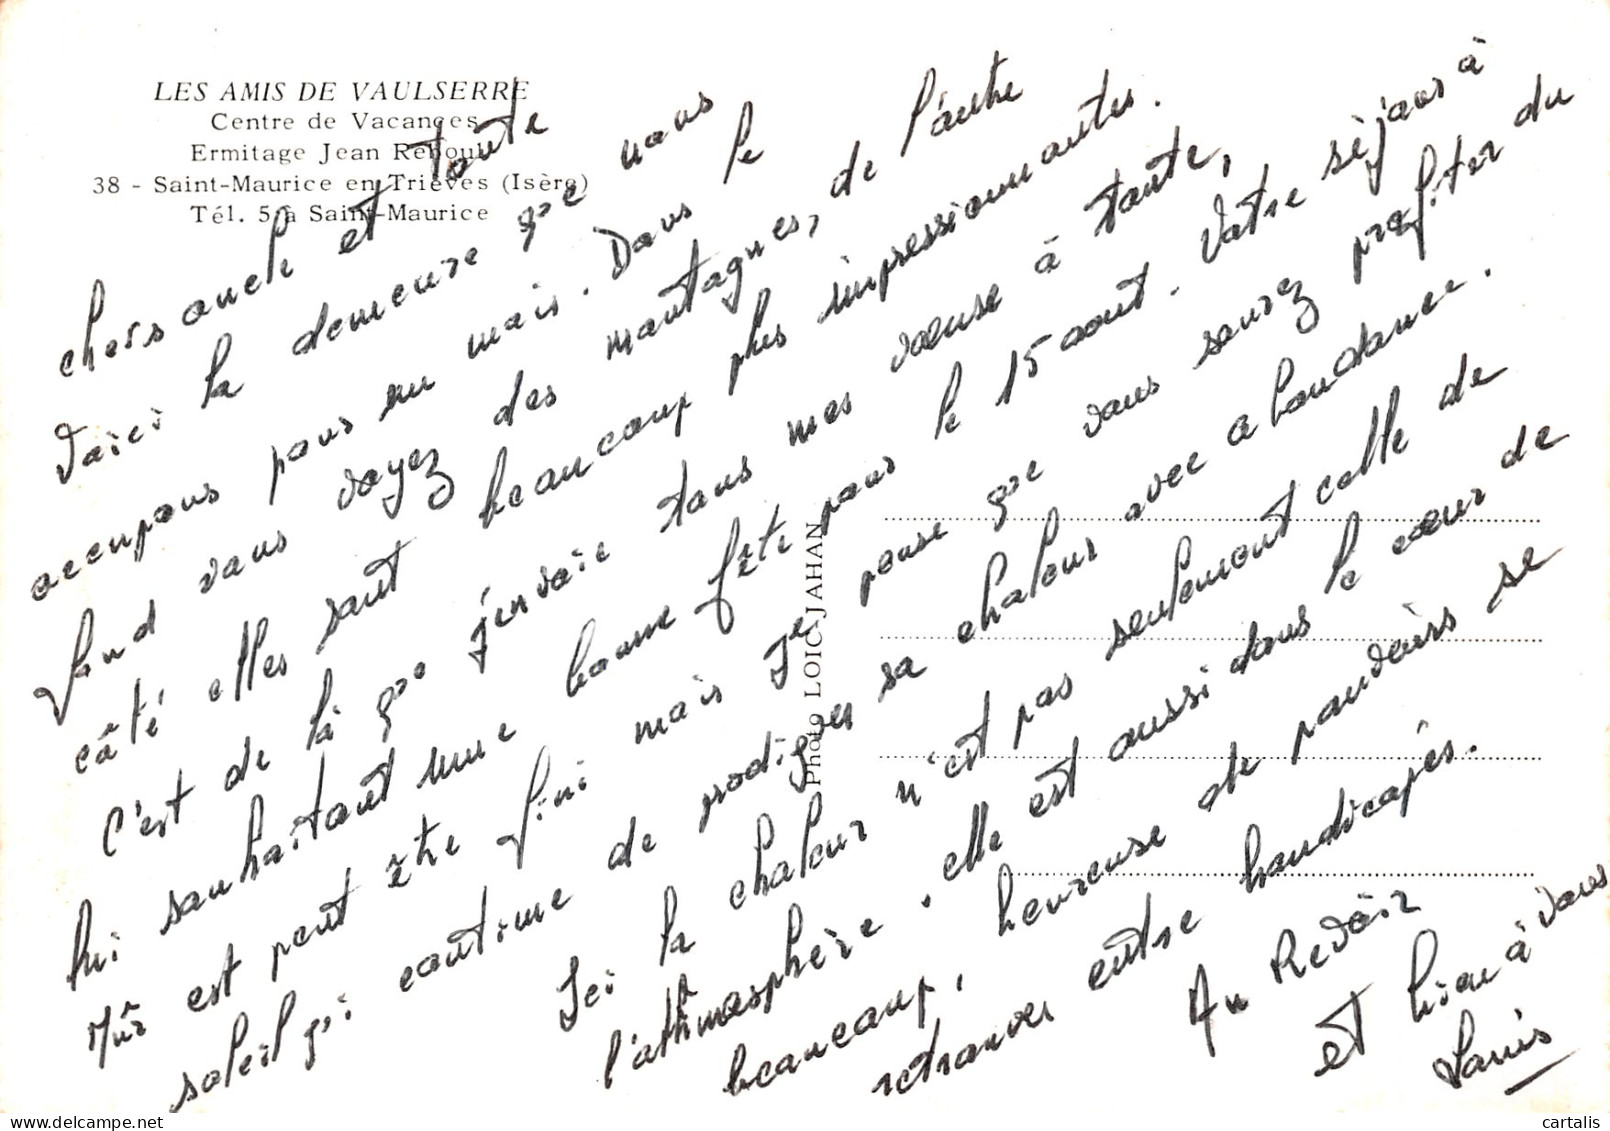 LES AMIS DE VAULSERRE
Centre de Vacances
Ermitage Jean Reboul
38 - Saint-Maurice en Trièves (Isère)
Tél. 5 à Saint-Maurice
chers oncle et toute
Voici la demeure que nous
occupons pour un mois. Dans le
fond vous voyez des montagnes, de l'autre
côté elles sont beaucoup plus impressionnantes.
C'est de là que j'envoie tous mes voeuse à toute,
lui souhaitant une bonne fête pour le 15 aout. Votre séjour à
Mûr est peut être fini mais je pense que vous saurez profiter du
soleil qui continue de prodiguer sa chaleur avec abondance.
Ici la chaleur n'est pas seulement celle de
l'athmosphère. elle est aussi dans le cœur de
beaucoup, heureuse de pouvoirs se
retrouver entre handicapés.
Au Revoir
et bien à vous
Louis
Photo LOIC-JAHAN
cartalis